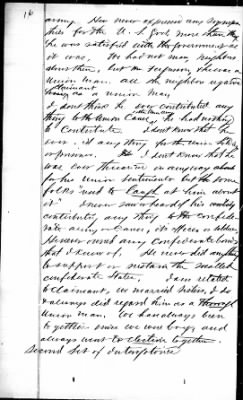 16
army. He never expressed any sympa-
thies for the U.S. Govt more than that
he was satisfied with the government as
it was. He had not many neighbors
about them, but he
Union man. all the neighbors regarded
claimant as a Union man
I don't think he ever contributed any
thing to the Union Cause, He had nothing
to Contribute I don't know that he
ever did any thing for the Union
or prisoner. I don't know that he
was ever threatened in any way about
for his Union sentiments but the young
folks "used to laugh at him about
it" I never saw or heard of his
contributing any thing to the confede-
rate army or Cause, its officers or soldiers.
He never owned any Confederate bonds
that I know of. He never did any thing
to support or sustain the so called
confederate States. I am related
to claimant, we married sisters, I do
& always did regard him as a thorough
Union man. We have always been
together since we were boys and
always went to elections together.
Second Set of Interrogatories